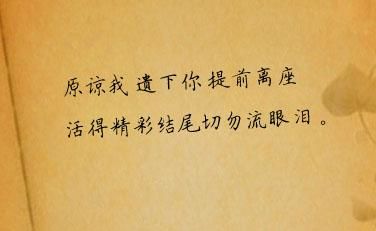 原谅我遗下你提前离座
活得精彩结尾切勿流眼泪。